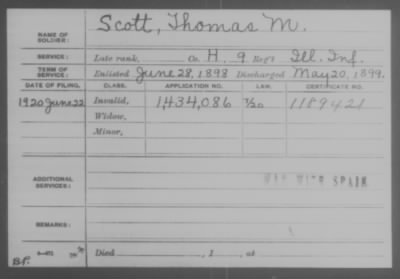 Scott, Thomas M.
NAME OF SOLDIER:
SERVICE: Late rank, Co. H, 9 Reg't Ill. Inf.
TERM OF SERVICE: Enlisted June 28, 1898 Discharged May 20, 1899.
DATE OF FILING. CLASS. APPLICATION NO. LAW. CERTIFICATE NO.
1920 June 22 Invalid, 1,434,086 1189421
Widow,
Minor,
ADDITIONAL SERVICES: WAR WITH SPAIN
REMARKS:
Died , 1 , at